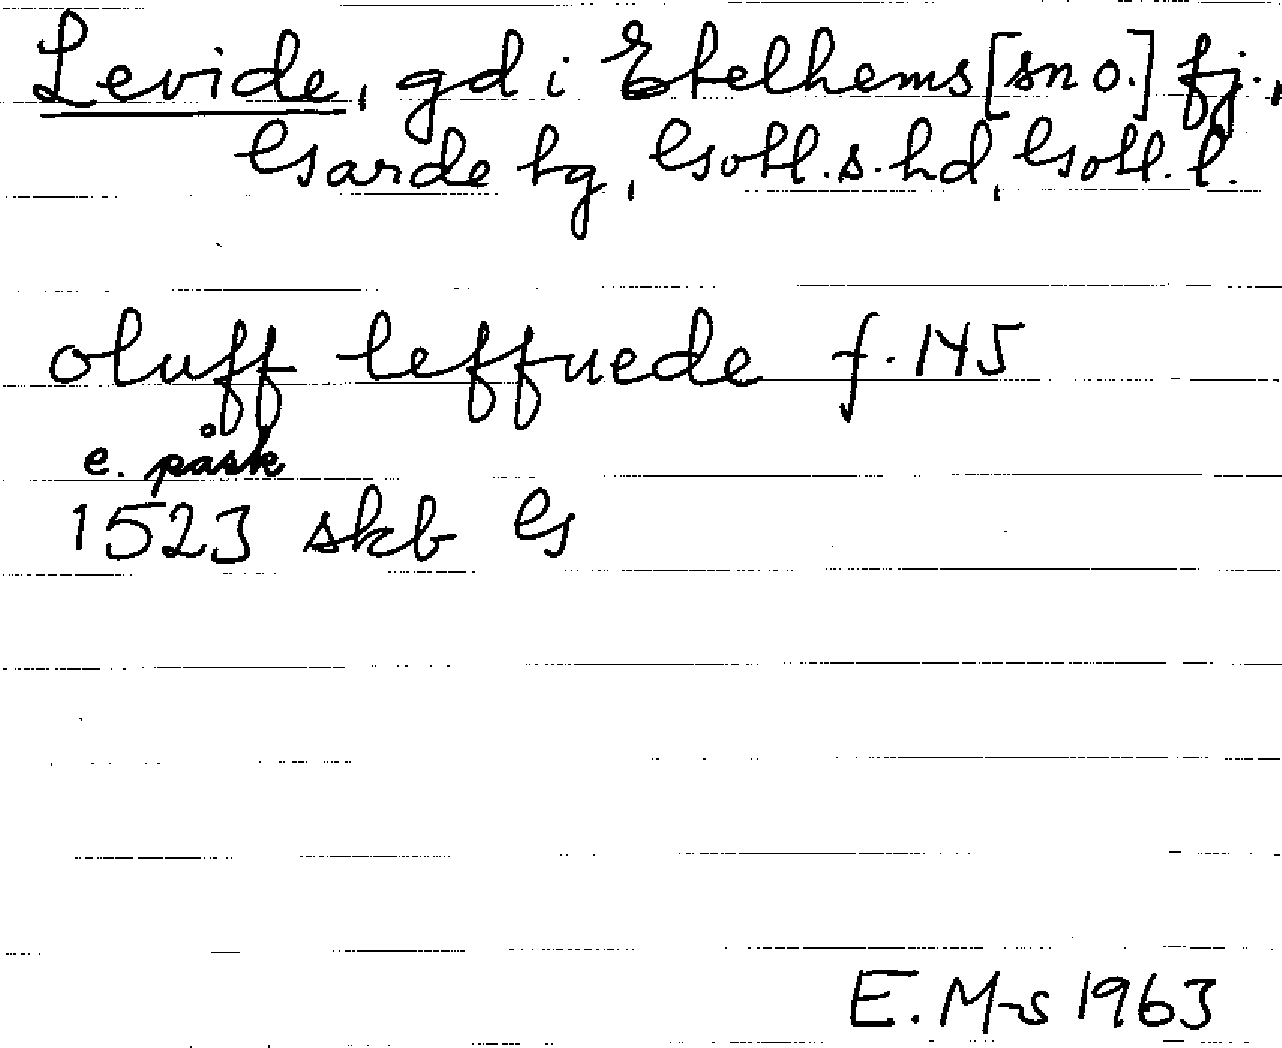 Levide, gd i Etelhems [sn o.] fj.,
Garde tg, Gotl. s. hd, Gotl. l.
oluff leffuede f. 145
e. påsk
1523 skb G
E. M-s 1963